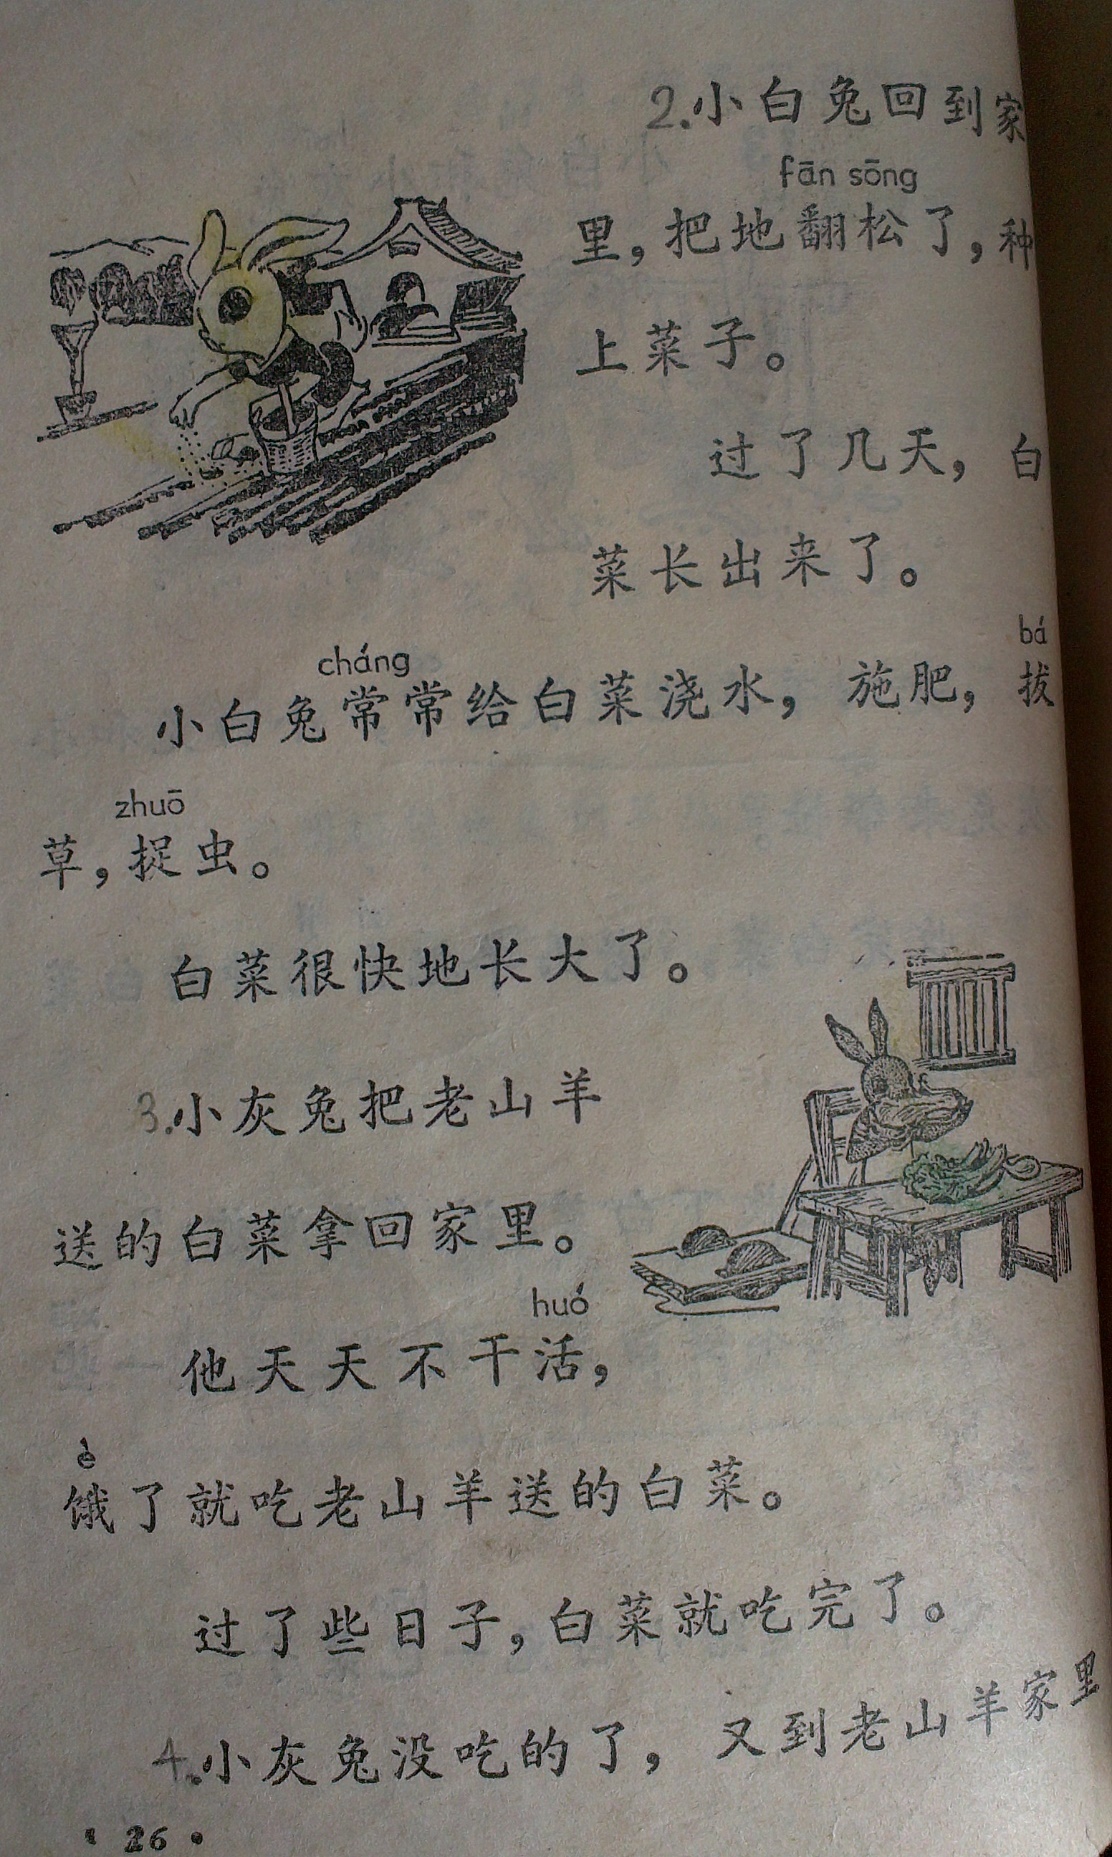 2.小白兔回到家
fān sōng
里，把地翻松了，种
上菜子。
过了几天，白
菜长出来了。
cháng bá
小白兔常常给白菜浇水，施肥，拔
zhuō
草，捉虫。
白菜很快地长大了。
3.小灰兔把老山羊
送的白菜拿回家里。
huó
他天天不干活，
è
饿了就吃老山羊送的白菜。
过了些日子，白菜就吃完了。
4.小灰兔没吃的了，又到老山羊家里
·26·